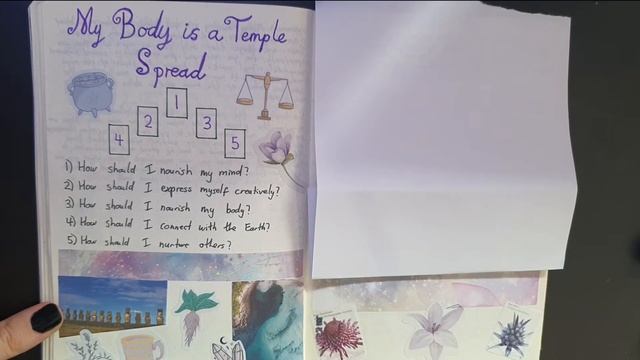 My Body is a Temple
Spread
1
2
3
4
5
1) How should I nourish my mind?
2) How should I express myself creatively?
3) How should I nourish my body?
4) How should I connect with the Earth?
5) How should I nurture others?